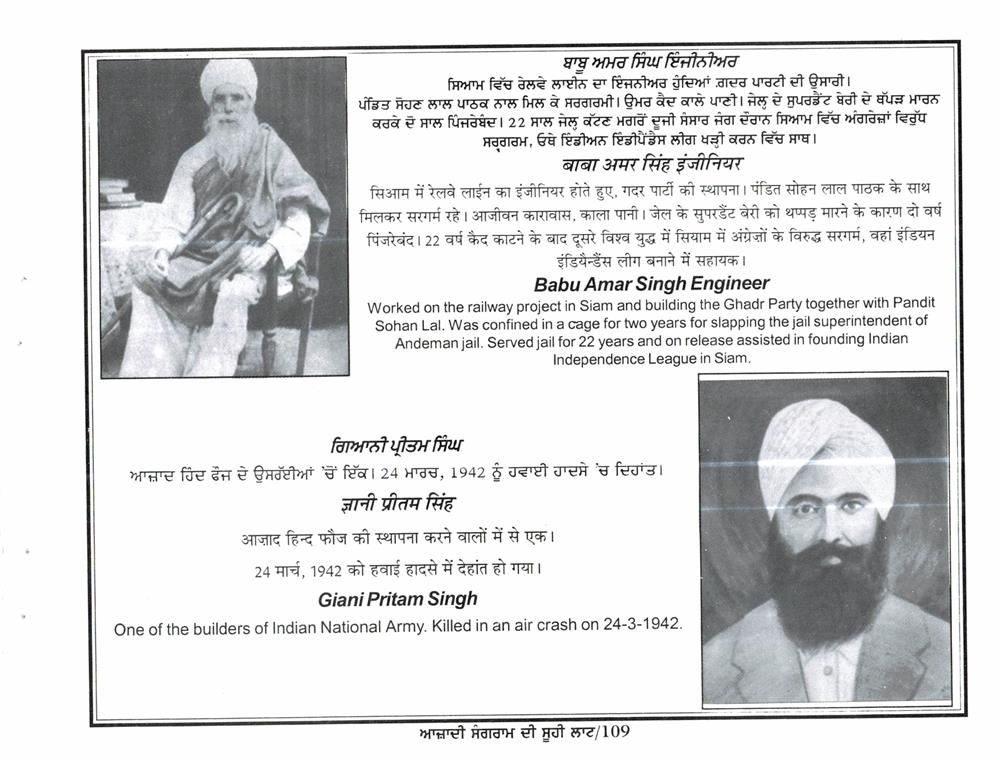 ਬਾਬੂ ਅਮਰ ਸਿੰਘ ਇੰਜੀਨੀਅਰ
ਸਿਆਮ ਵਿੱਚ ਰੇਲਵੇ ਲਾਈਨ ਦਾ ਇੰਜਨੀਅਰ ਹੁੰਦਿਆਂ ਗ਼ਦਰ ਪਾਰਟੀ ਦੀ ਉਸਾਰੀ।
ਪੰਡਿਤ ਸੋਹਣ ਲਾਲ ਪਾਠਕ ਨਾਲ ਮਿਲ ਕੇ ਸਰਗਰਮੀ। ਉਮਰ ਕੈਦ ਕਾਲੇ ਪਾਣੀ। ਜੇਲ੍ਹ ਦੇ ਸੁਪਰਡੈਂਟ ਬੇਰੀ ਦੇ ਥੱਪੜ ਮਾਰਨ
ਕਰਕੇ ਦੋ ਸਾਲ ਪਿੰਜਰੇਬੰਦ। 22 ਸਾਲ ਜੇਲ੍ਹ ਕੱਟਣ ਮਗਰੋਂ ਦੂਜੀ ਸੰਸਾਰ ਜੰਗ ਦੌਰਾਨ ਸਿਆਮ ਵਿੱਚ ਅੰਗਰੇਜ਼ਾਂ ਵਿਰੁੱਧ
ਸਰ੍ਗਰਮ, ਓਥੇ ਇੰਡੀਅਨ ਇੰਡੀਪੈਂਡੈਸ ਲੀਗ ਖੜ੍ਹੀ ਕਰਨ ਵਿੱਚ ਸਾਥ।
बाबा अमर सिंह इंजीनियर
सिआम में रेलवे लाईन का इंजीनियर होते हुए, गदर पार्टी की स्थापना। पंडित सोहन लाल पाठक के साथ
मिलकर सरगर्म रहे। आजीवन कारावास, काला पानी। जेल के सुपरडैंट बेरी को थप्पड़ मारने के कारण दो वर्ष
पिंजरेबंद। 22 वर्ष कैद काटने के बाद दूसरे विश्व युद्ध में सियाम में अंग्रेजों के विरुद्ध सरगर्म, वहां इंडियन
इंडिपैन्डैंस लीग बनाने में सहायक।
Babu Amar Singh Engineer
Worked on the railway project in Siam and building the Ghadr Party together with Pandit
Sohan Lal. Was confined in a cage for two years for slapping the jail superintendent of
Andeman jail. Served jail for 22 years and on release assisted in founding Indian
Independence League in Siam.
ਗਿਆਨੀ ਪ੍ਰੀਤਮ ਸਿੰਘ
ਆਜ਼ਾਦ ਹਿੰਦ ਫੌਜ ਦੇ ਉਸਰੱਈਆਂ ’ਚੋਂ ਇੱਕ। 24 ਮਾਰਚ, 1942 ਨੂੰ ਹਵਾਈ ਹਾਦਸੇ ’ਚ ਦਿਹਾਂਤ।
ज्ञानी प्रीतम सिंह
आज़ाद हिन्द फौज की स्थापना करने वालों में से एक।
24 मार्च, 1942 को हवाई हादसे में देहांत हो गया।
Giani Pritam Singh
One of the builders of Indian National Army. Killed in an air crash on 24-3-1942.
ਆਜ਼ਾਦੀ ਸੰਗਰਾਮ ਦੀ ਸੂਹੀ ਲਾਟ/109